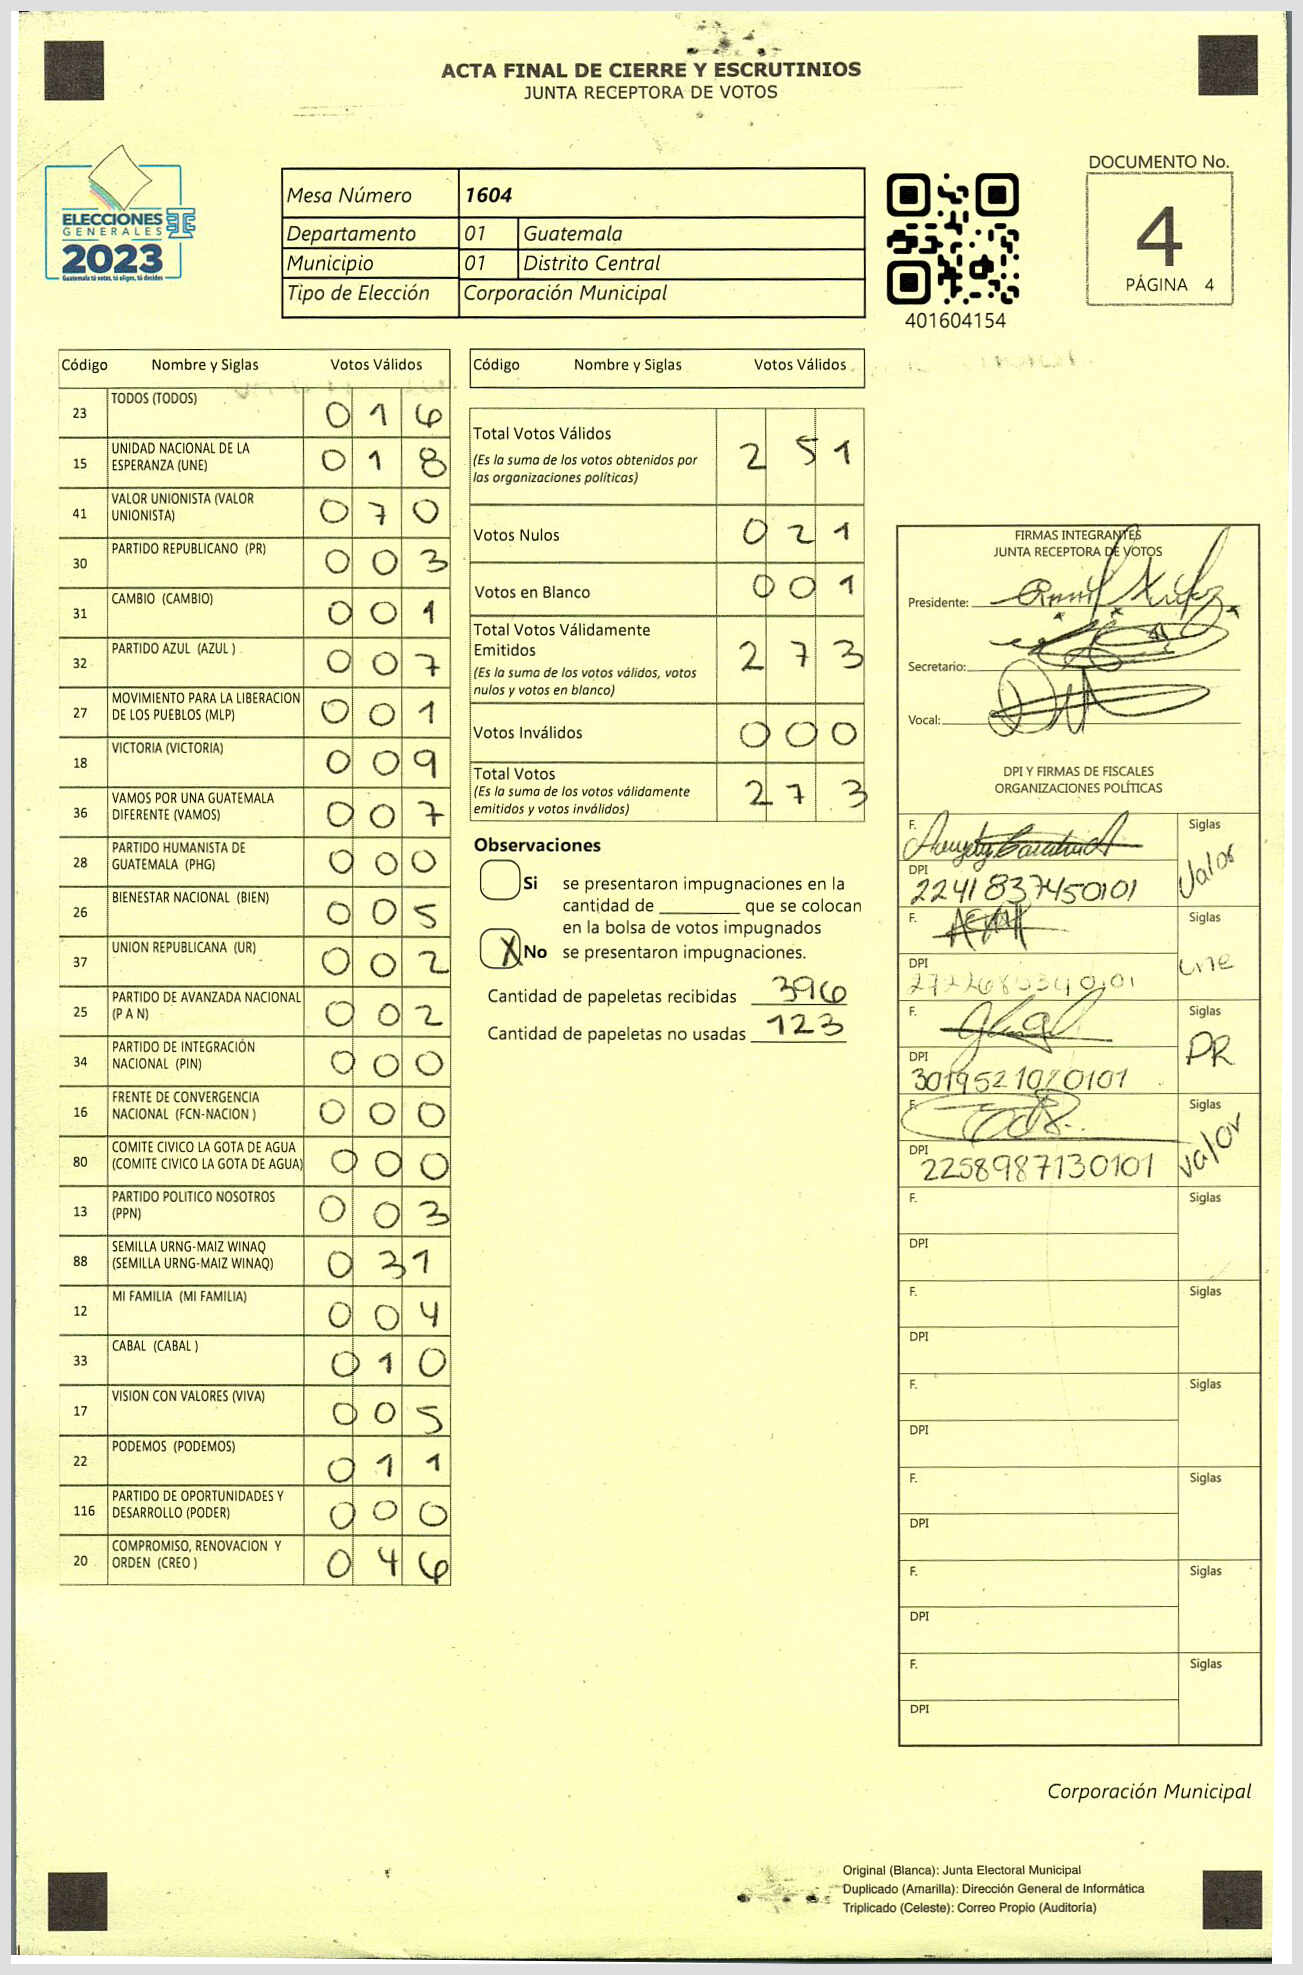 ACTA FINAL DE CIERRE Y ESCRUTINIOS
JUNTA RECEPTORA DE VOTOS
ELECCIONES
GENERALES
2023
Guatemala tú votas, tú eliges, tú decides
Mesa Número 1604
Departamento 01 Guatemala
Municipio 01 Distrito Central
Tipo de Elección Corporación Municipal
401604154
DOCUMENTO No.
4
PÁGINA 4
Código Nombre y Siglas Votos Válidos
23 TODOS (TODOS) 0 1 6
15 UNIDAD NACIONAL DE LA ESPERANZA (UNE) 0 1 8
41 VALOR UNIONISTA (VALOR UNIONISTA) 0 7 0
30 PARTIDO REPUBLICANO (PR) 0 0 3
31 CAMBIO (CAMBIO) 0 0 1
32 PARTIDO AZUL (AZUL ) 0 0 7
27 MOVIMIENTO PARA LA LIBERACION DE LOS PUEBLOS (MLP) 0 0 1
18 VICTORIA (VICTORIA) 0 0 9
36 VAMOS POR UNA GUATEMALA DIFERENTE (VAMOS) 0 0 7
28 PARTIDO HUMANISTA DE GUATEMALA (PHG) 0 0 0
26 BIENESTAR NACIONAL (BIEN) 0 0 5
37 UNION REPUBLICANA (UR) 0 0 2
25 PARTIDO DE AVANZADA NACIONAL (P A N) 0 0 2
34 PARTIDO DE INTEGRACIÓN NACIONAL (PIN) 0 0 0
16 FRENTE DE CONVERGENCIA NACIONAL (FCN-NACION ) 0 0 0
80 COMITE CIVICO LA GOTA DE AGUA (COMITE CIVICO LA GOTA DE AGUA) 0 0 0
13 PARTIDO POLITICO NOSOTROS (PPN) 0 0 3
88 SEMILLA URNG-MAIZ WINAQ (SEMILLA URNG-MAIZ WINAQ) 0 3 1
12 MI FAMILIA (MI FAMILIA) 0 0 4
33 CABAL (CABAL ) 0 1 0
17 VISION CON VALORES (VIVA) 0 0 5
22 PODEMOS (PODEMOS) 0 1 1
116 PARTIDO DE OPORTUNIDADES Y DESARROLLO (PODER) 0 0 0
20 COMPROMISO, RENOVACION Y ORDEN (CREO ) 0 4 6
Código Nombre y Siglas Votos Válidos
Total Votos Válidos 2 5 1
(Es la suma de los votos obtenidos por
las organizaciones políticas)
Votos Nulos 0 2 1
Votos en Blanco 0 0 1
Total Votos Válidamente
Emitidos 2 7 3
(Es la suma de los votos válidos, votos
nulos y votos en blanco)
Votos Inválidos 0 0 0
Total Votos 2 7 3
(Es la suma de los votos válidamente
emitidos y votos inválidos)
Observaciones
Si se presentaron impugnaciones en la
cantidad de ________ que se colocan
en la bolsa de votos impugnados
X No se presentaron impugnaciones.
Cantidad de papeletas recibidas 396
Cantidad de papeletas no usadas 123
FIRMAS INTEGRANTES
JUNTA RECEPTORA DE VOTOS
Presidente:
Secretario:
Vocal:
DPI Y FIRMAS DE FISCALES
ORGANIZACIONES POLÍTICAS
F. Siglas Valor
DPI 2241837450101
F. Siglas une
DPI
F. Siglas PR
DPI
F. Siglas Valor
DPI 2258987130101
F. Siglas
DPI
F. Siglas
DPI
F. Siglas
DPI
F. Siglas
DPI
F. Siglas
DPI
F. Siglas
DPI
Corporación Municipal
Original (Blanca): Junta Electoral Municipal
Duplicado (Amarilla): Dirección General de Informática
Triplicado (Celeste): Correo Propio (Auditoría)